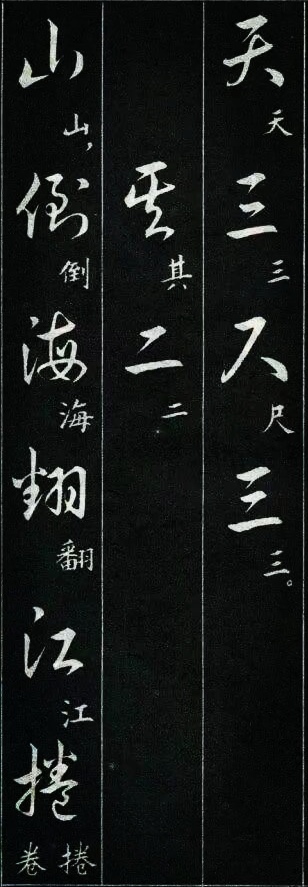 天三尺三
天三尺三。
其二
其二
山倒海翻江捲
山，倒海翻江捲
卷